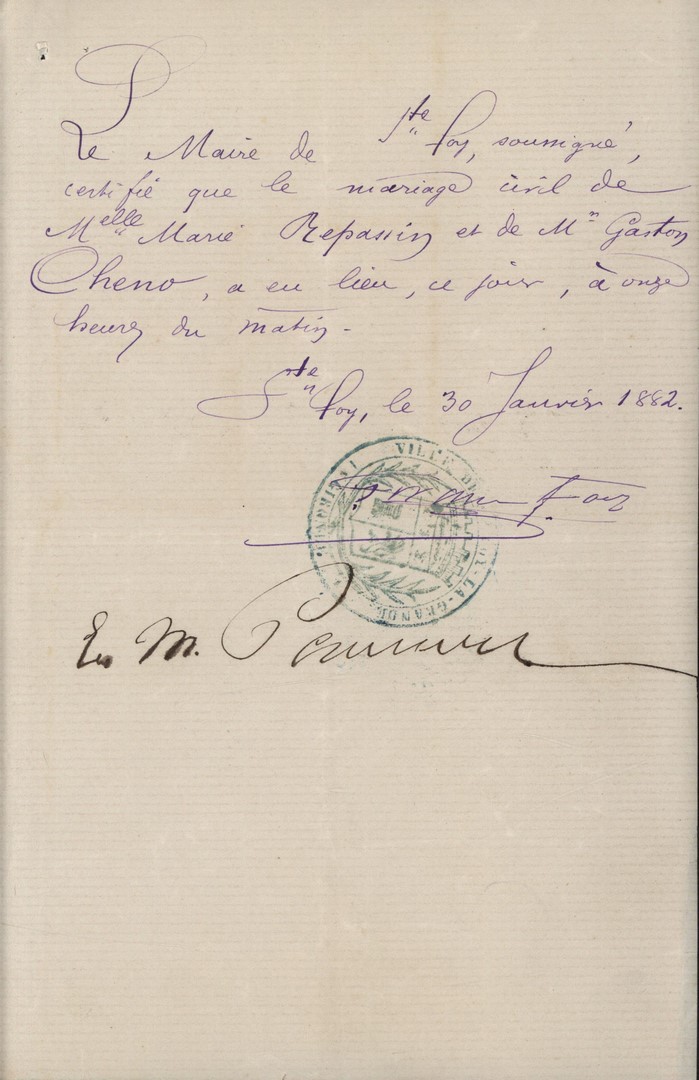 Le Maire de Ste Foy, soussigné,
certifie que le mariage civil de
Melle Marie Repassin et de Mr Gaston
Cheno, a eu lieu, ce jour, à onze
heures du matin -
Ste Foy, le 30 Janvier 1882.
VILLE DE LA-GRANDE
M.